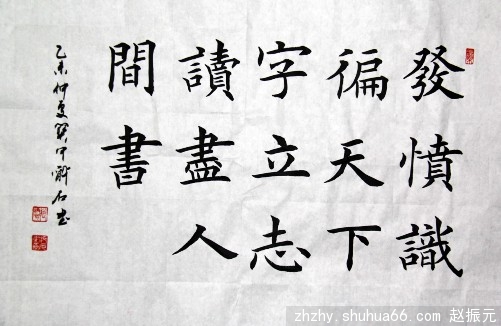 發憤識
徧天下
字立志
讀盡人
間書
乙未仲夏
zhzhy.shuhua66.com 赵振元